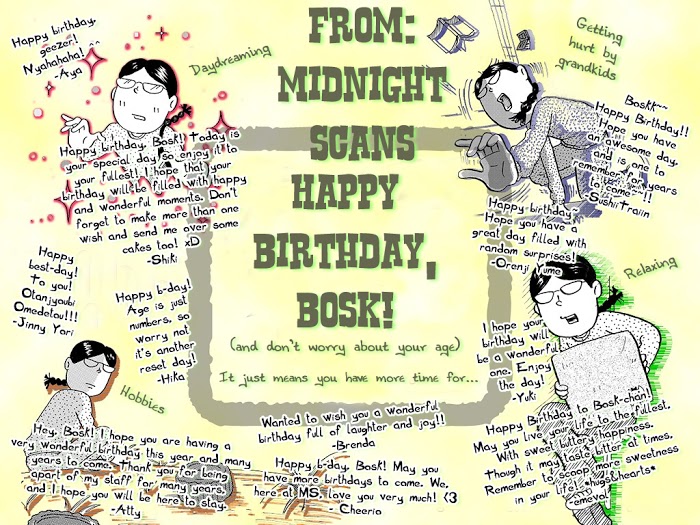 FROM:
MIDNIGHT
SCANS
HAPPY
BIRTHDAY,
BOSK!
(and don't worry about your age)
It just means you have more time for...
Happy birthday,
geezer!
Nyahahaha! ^^
-Aya
Daydreaming
Happy birthday, Bosk! Today is
your special day, so enjoy it to
your fullest! I hope that your
birthday will be filled with happy
and wonderful moments. Don't
forget to make more than one
wish and send me over some
cakes too! xD
-Shiki
Getting
hurt by
grandkids
Boskk~~
Happy Birthday!!
Hope you have
an awesome day,
and is one to
remember for years
to come~~!!
-SushiiTraiin
Happy birthday.
Hope you have a
great day filled with
random surprises!
-Orenji Yume
Relaxing
Happy
best-day!
To you!
Otanjyoubi
Omedetou!!!
-Jinny Yori
Happy b-day!
Age is just
numbers, so
worry not
it's another
reset day!
-Hika
I hope your
birthday will
be a wonderful
one. Enjoy
the day!
-Yuki
Hobbies
Hey, Bosk! I hope you are having a
very wonderful birthday this year and many
years to come. Thank you for being
apart of my staff for many years,
and I hope you will be here to stay.
-Atty
Wanted to wish you a wonderful
birthday full of laughter and joy!!
-Brenda
Happy b-day, Bosk! May you
have more birthdays to come. We,
here at MS, love you very much! <3
- Cheerio
Happy Birthday to Bosk-chan!
May you live your life to the fullest,
With sweet buttery happiness.
Though it may taste bitter at times,
Remember to scoop more sweetness
in your life! *hugs&hearts*
-emevol